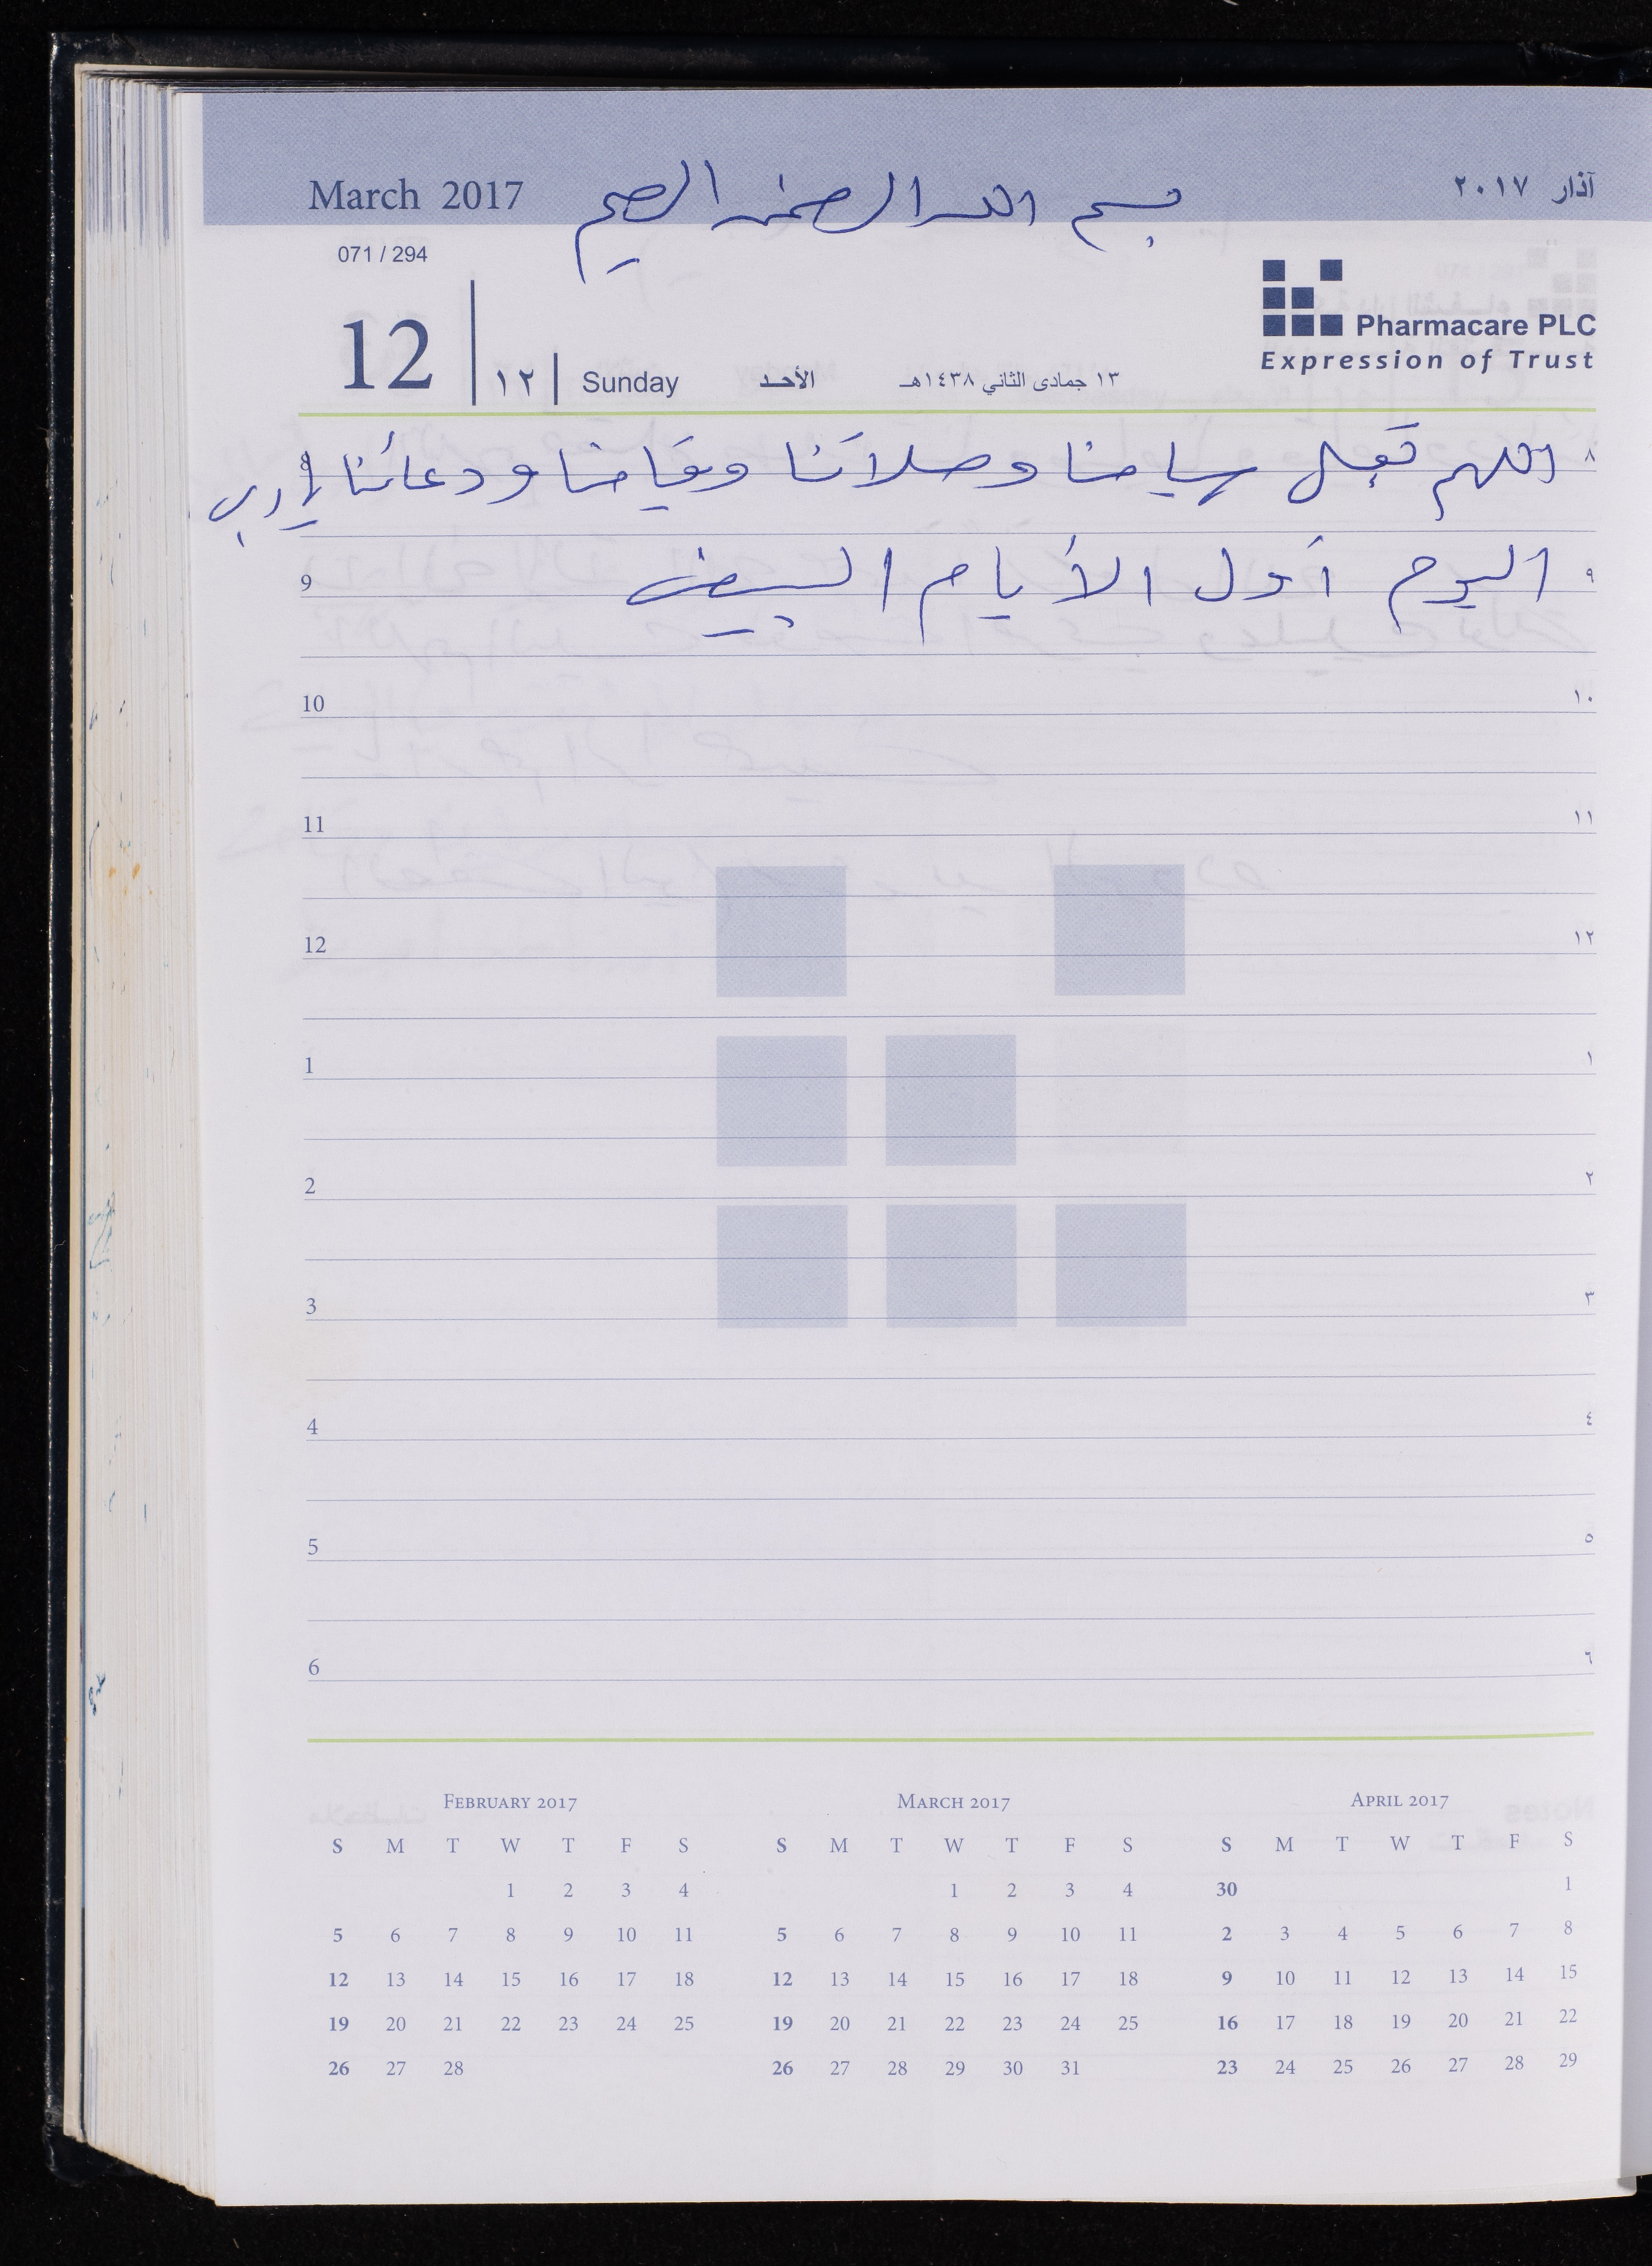 March 2017 بسم الله الرحمن الرحيم آذار ٢٠١٧
071 / 294
Pharmacare PLC
Expression of Trust
12 ١٢ Sunday الأحد ١٣ جمادى الثاني ١٤٣٨هـ
٨ اللهم تقبل صيامنا وصلاتنا وقيامنا ودعائنا يا رب
9 اليوم أول الأيام البيض ٩
10 ١٠
11 ١١
12 ١٢
1 ١
2 ٢
3 ٣
4 ٤
5 ٥
6 ٦
FEBRUARY 2017 MARCH 2017 APRIL 2017
S M T W T F S S M T W T F S S M T W T F S
1 2 3 4 1 2 3 4 30 1
5 6 7 8 9 10 11 5 6 7 8 9 10 11 2 3 4 5 6 7 8
12 13 14 15 16 17 18 12 13 14 15 16 17 18 9 10 11 12 13 14 15
19 20 21 22 23 24 25 19 20 21 22 23 24 25 16 17 18 19 20 21 22
26 27 28 26 27 28 29 30 31 23 24 25 26 27 28 29